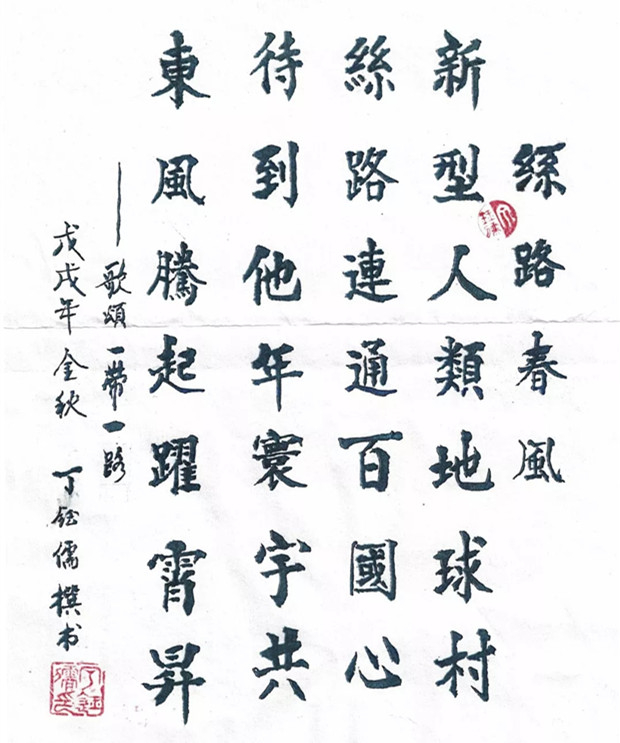 絲路春風
新型人類地球村
絲路連通百國心
待到他年寰宇共
東風騰起躍霄昇
——歌頌一帶一路
戊戌年金秋 丁鈺儒撰书